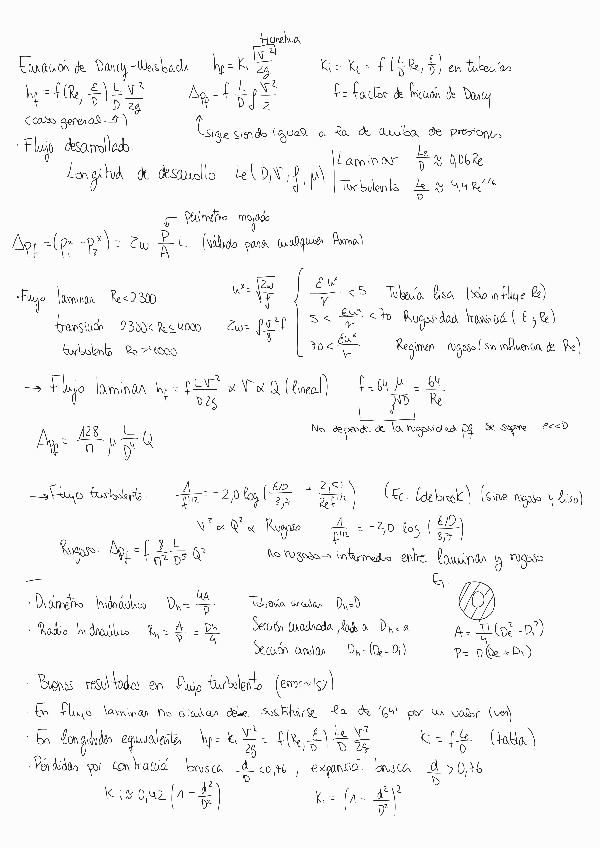 tubería
Ecuación de Darcy-Weisbach h_f = K_i V²/2g K_i = K_i = f(L/D, Re, ε/D) en tuberías
h_f = f(Re, ε/D) L/D V²/2g Δp_f = f L/D ρ V²/2 f = factor de fricción de Darcy
(caso general)
sigue siendo igual a la de arriba de presiones
· Flujo desarrollado.
Longitud de desarrollo Le(D, V, ρ, μ) Laminar Le/D ≈ 0,06 Re
Turbulento Le/D ≈ 4,4 Re^1/6
perímetro mojado
Δp_f = (p₁* - p₂*) = τw P/A L (válido para cualquier forma)
· Flujo laminar Re<2300 u* = √(τw/ρ) εu*/ν < 5 Tubería lisa (sólo influye Re)
transición 2300<Re≤4000 τw = ρV²f/8 5 < εu*/ν < 70 Rugosidad transició (ε, Re)
turbulento Re>4000 70 < εu*/ν Régimen rugoso (sin influencia de Re)
→ Flujo laminar h_f = f LV²/D2g ∝ V ∝ Q (lineal) f = 64 μ/ρVD = 64/Re
No depende de la rugosidad pq se supone ε<<D
Δp_f = 128/π μ L/D⁴ Q
→ Flujo turbulento. 1/f^1/2 = -2,0 log(ε/D/3,7 + 2,51/Re f^1/2) (Ec. Colebrook) (sirve rugoso y liso)
V² ∝ Q² ∝ Rugoso 1/f^1/2 = -2,0 log(ε/D/3,7)
Rugoso. Δp_f = f 8/π² L/D⁵ Q² No rugoso → intermedio entre laminar y rugoso
Ej.
· Diámetro hidráulico D_h = 4A/P Tubería circular D_h=D
· Radio hidráulico R_h = A/P = D_h/4 Sección cuadrada, lado a D_h = a A = π/4 (De² - Di²)
Sección anular D_h = (De - Di) P = π(De + Di)
· Buenos resultados en flujo turbulento
· En flujo laminar no circular debe sustituirse la de '64' por un valor (ver)
· En longitudes equivalentes h_f = K_i V²/2g = f(Re, ε/D) Le/D V²/2g K_i = f Le/D (tabla)
· Pérdidas por contracció brusca d/D < 0,76, expansió brusca d/D > 0,76
K_i ≈ 0,42 (1 - d²/D²) K_i = (1 - d²/D²)²